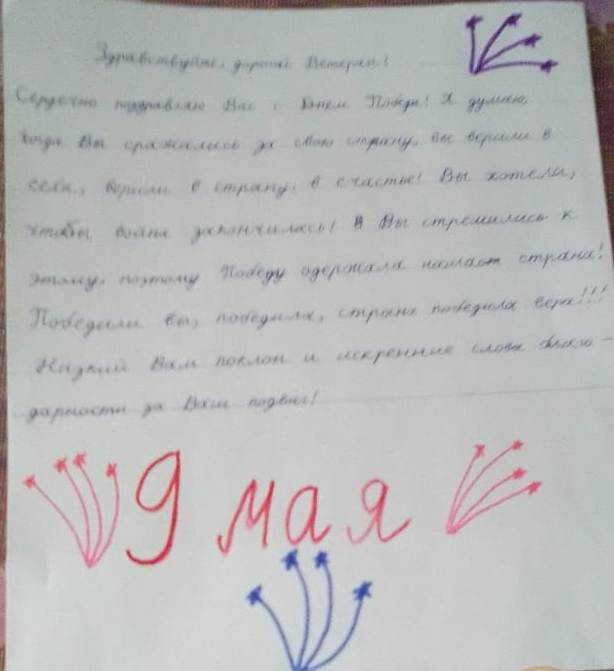 Здравствуйте, дорогой Ветеран!
Сердечно поздравляю Вас с Днем Победы! Я думаю,
когда Вы сражались за свою страну, вы верили в
себя, верили в страну, в счастье! Вы хотели,
чтобы война закончилась! И Вы стремились к
этому, поэтому Победу одержала наша страна!
Победили вы, победила, страна победила вера!!!
Низкий Вам поклон и искренние слова благо-
дарности за Ваш подвиг!
9 мая